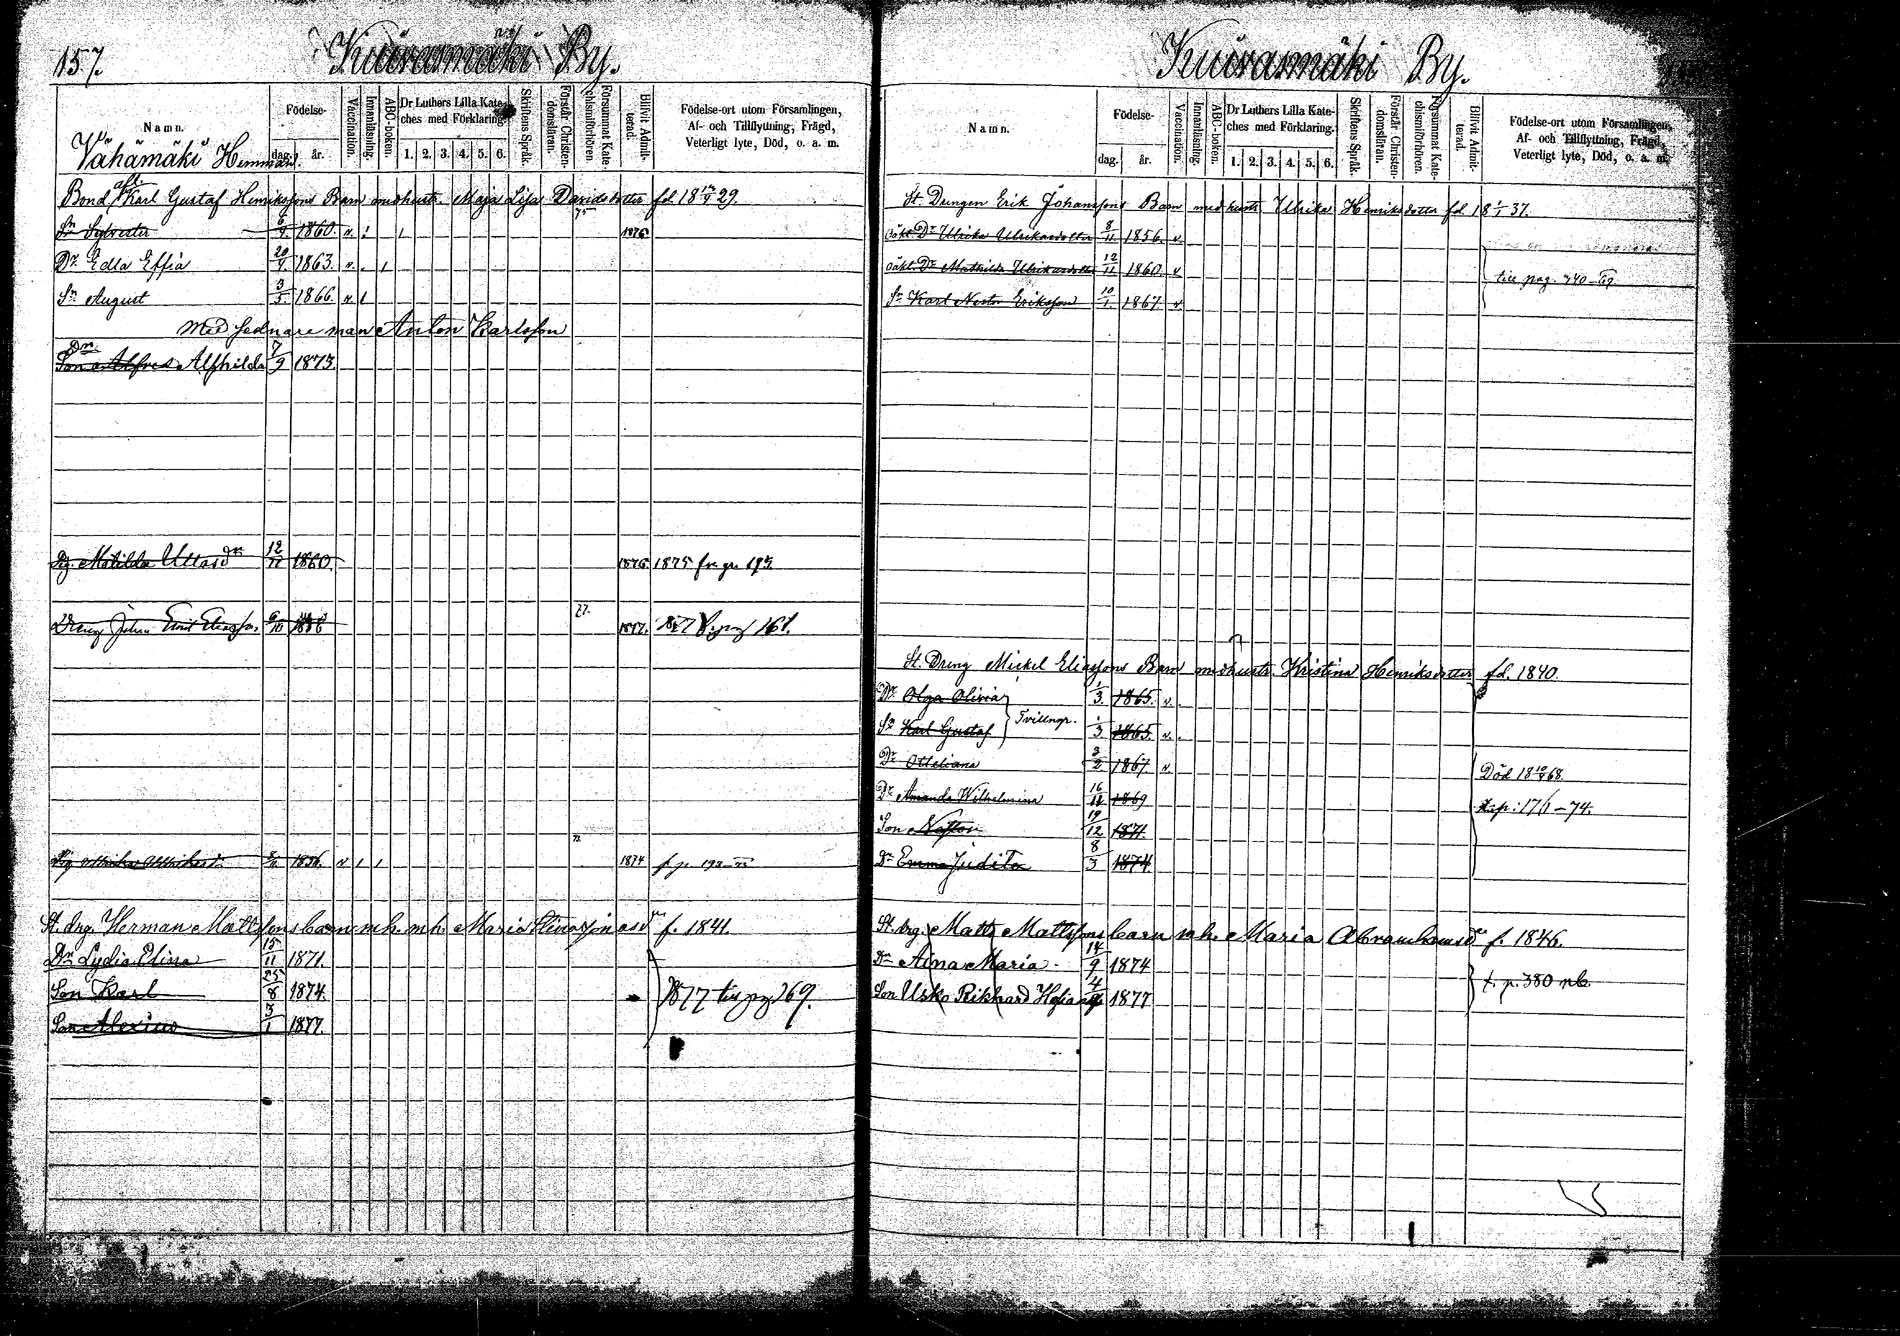 157.
Kuivasmäki By.
Namn.
Födelse-
dag. år.
Vaccination.
Innanläsning.
ABC-boken.
Dr Luthers Lilla Kate-
ches med Förklaring.
1. 2. 3. 4. 5. 6.
Skriftens Språk.
Förstår Christen-
domsläran.
Försummat Kate-
chismiförhören.
Blifvit Admit-
terad.
Födelse-ort utom Församlingen,
Af- och Tillflyttning, Frägd,
Veterligt lyte, Död, o. a. m.
Vähämäki Hemman.
Bond. afl. Karl Gustaf Henrikssons Barn med hustr. Maja Lisa Davidsdotter fd. 18 /9 29.
Sn Sylvester 1860. v. 1 75 1876
Dr Edla Effia 20/4 1863. v. 1
Sn August 3/5 1866. v 1
Med sednare man Anton Karlsson
Dr
Son Alfred Alfhilda 7/9 1873.
Pig. Matilda Ullasdr 12/11 1860. 1876. 1875 fr. pr.
Dreng Johan Emil Eliasson 77. 1877. 1877 f. pag 161.
Pig Ulrika Ulrikasdr 8/11 1856. v 1 1 1874 f. p. 193
St. drg. Herman Mattssons barn m. h. m. h. Maria f. 1841.
Dr Lydia Elina 15/11 1871.
Son Karl 25/8 1874. 1877 till pag 169.
Son Alexius 3/1 1877.
Kuivasmäki By.
Namn.
Födelse-
dag. år.
Vaccination.
Innanläsning.
ABC-boken.
Dr Luthers Lilla Kate-
ches med Förklaring.
1. 2. 3. 4. 5. 6.
Skriftens Språk.
Förstår Christen-
domsläran.
Försummat Kate-
chismiförhören.
Blifvit Admit-
terad.
Födelse-ort utom Församlingen,
Af- och Tillflyttning, Frägd,
Veterligt lyte, Död, o. a. m.
St. Drengen Erik Johanssons Barn med hustr. Ulrika Henriksdotter fd. 18 1/1 37.
oäkt. Dr Ulrika Ulrikasdotter 8/11 1856. v.
oäkt. Dr Mathilda Ulrikasdotter 12/11 1860. v till pag. 240
Sn Karl Nestor Eriksson 10/1 1867 v
St. Dreng Mickel Eliassons Barn med hustr. Kristina Henriksdotter fd. 1840.
Dr Olga Olivia 1/3 1865. v.
Tvillngr.
Sn Karl Gustaf 1/3 1865. v.
Dr Otteliana 3/2 1867. v. Död 18 68.
Dr Amanda Wilhelmina 16/11 1869 t. p: 176-74.
Son 19/12 1871.
Dr Emma Judita 8/3 1874.
St. drg. Matt Mattssons barn m. h. Maria Abrahamsdr f. 1846.
Dr Aina Maria 14/9 1874
t. p. 380 nb.
Son Usko Rikhard 1877